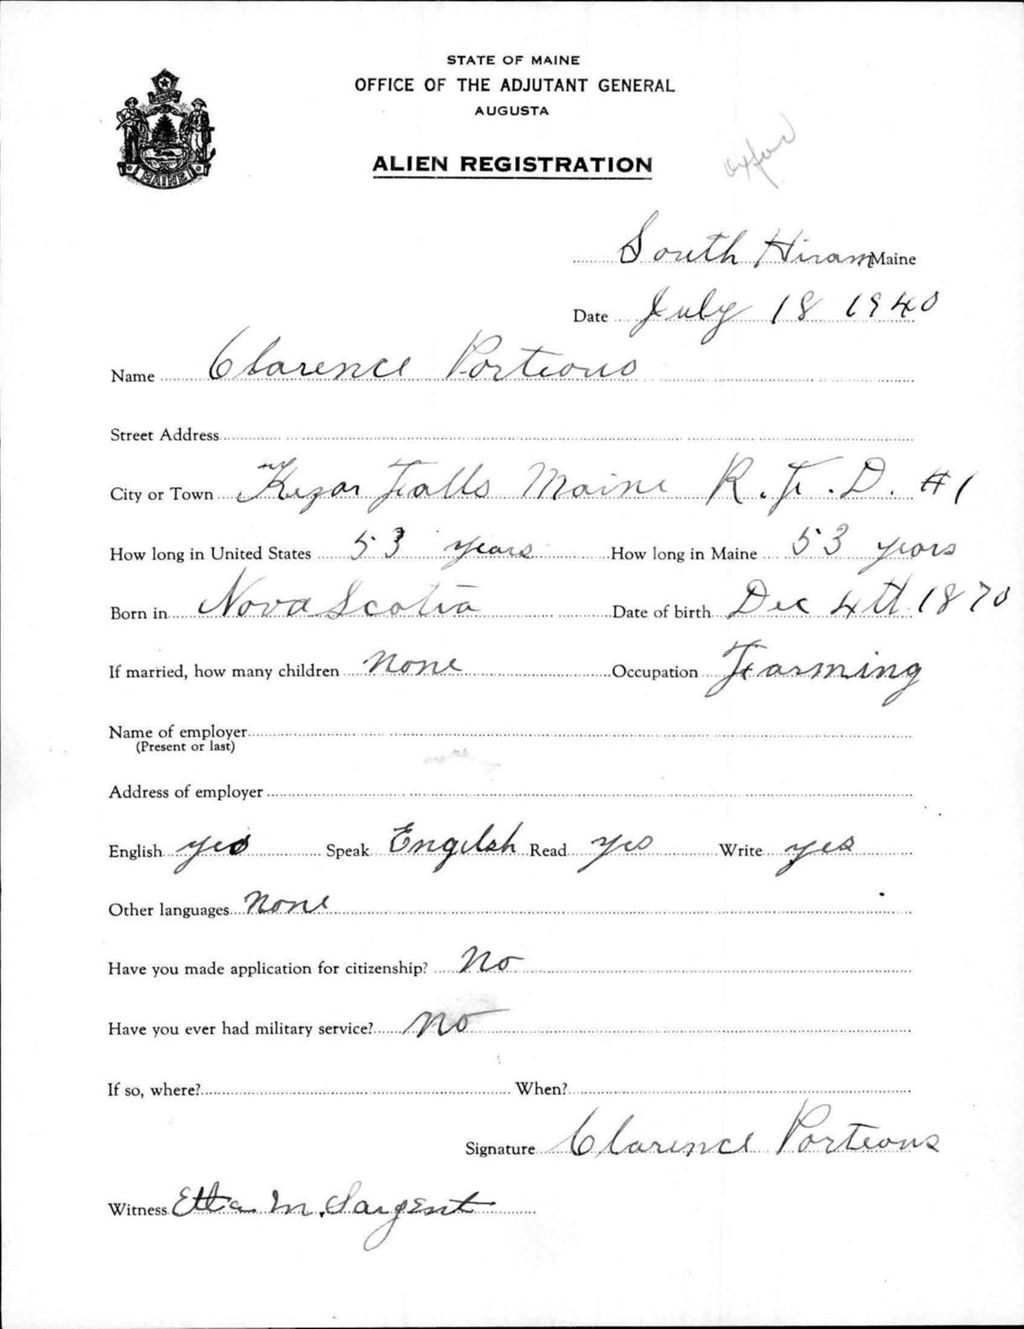 STATE OF MAINE
OFFICE OF THE ADJUTANT GENERAL
AUGUSTA
ALIEN REGISTRATION
oxford
MAINE
South Hiram Maine
Date July 18 1940
Name Clarence Porteous
Street Address
City or Town Kezar Falls Maine R.F.D. #1
How long in United States 53 years How long in Maine 53 years
Born in Nova Scotia Date of birth Dec 4th 1870
If married, how many children None Occupation Farming
Name of employer
(Present or last)
Address of employer
English yes Speak Engilsh Read yes Write yes
Other languages None
Have you made application for citizenship? No
Have you ever had military service? No
If so, where? When?
Signature Clarence Porteous
Witness Etta M. Sargent